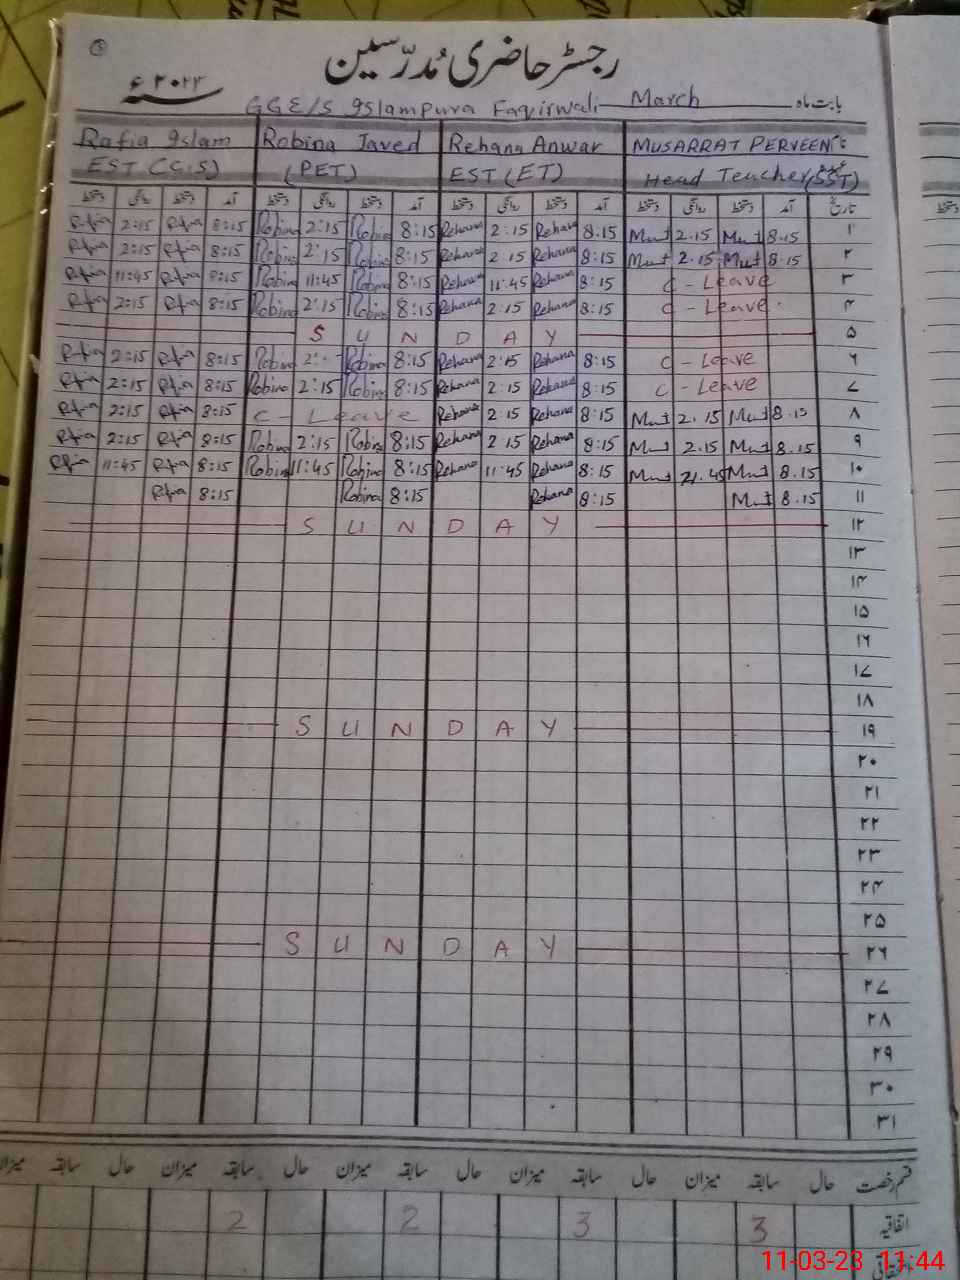 رجسٹر حاضری مُدرّسین
۲۰۲۳ء
GGE/S Islampura Faqirwali March بابت ماہ
Rafia Islam Robina Javed Rehana Anwar MUSARRAT PERVEEN
EST (C.S) (PET) EST (ET) Head Teacher (SST)
دستخط روانگی دستخط آمد دستخط روانگی دستخط آمد دستخط روانگی دستخط آمد دستخط روانگی دستخط آمد تاریخ
Rafia 2:15 Rafia 8:15 Robina 2:15 Robina 8:15 Rehana 2:15 Rehana 8:15 Mut 2.15 Mut 8.15 ۱
Rafia 2:15 Rafia 8:15 Robina 2:15 Robina 8:15 Rehana 2.15 Rehana 8:15 Mut 2.15 Mut 8.15 ۲
Rafia 11:45 Rafia 8:15 Robina 11:45 Robina 8:15 Rehana 11:45 Rehana 8:15 C - Leave ۳
Rafia 2:15 Rafia 8:15 Robina 2:15 Robina 8:15 Rehana 2:15 Rehana 8:15 C - Leave ۴
S U N D A Y ۵
Rafia 2:15 Rafia 8:15 Robina Robina 8:15 Rehana 2:15 Rehana 8:15 C - Leave ۶
Rafia 2:15 Rafia 8:15 Robina 2:15 Robina 8:15 Rehana 2.15 Rehana 8:15 C - Leave ۷
Rafia 2:15 Rafia 8:15 C - Leave Rehana 2.15 Rehana 8:15 Mut 2.15 Mut 8.15 ۸
Rafia 2:15 Rafia 8:15 Robina 2:15 Robina 8:15 Rehana 2.15 Rehana 8:15 Mut 2.15 Mut 8.15 ۹
Rafia 11:45 Rafia 8:15 Robina 11:45 Robina 8:15 Rehana 11:45 Rehana 8:15 Mut 21.45 Mut 8.15 ۱۰
Rafia 8:15 Robina 8:15 Rehana 8:15 Mut 8.15 ۱۱
S U N D A Y ۱۲
۱۳
۱۴
۱۵
۱۶
۱۷
۱۸
S U N D A Y ۱۹
۲۰
۲۱
۲۲
۲۳
۲۴
۲۵
S U N D A Y ۲۶
۲۷
۲۸
۲۹
۳۰
۳۱
قسم رخصت حال سابقہ میزان حال سابقہ میزان حال سابقہ میزان حال سابقہ میزان حال سابقہ میزان
اتفاقیہ 3 3 2 2
11-03-23 11:44